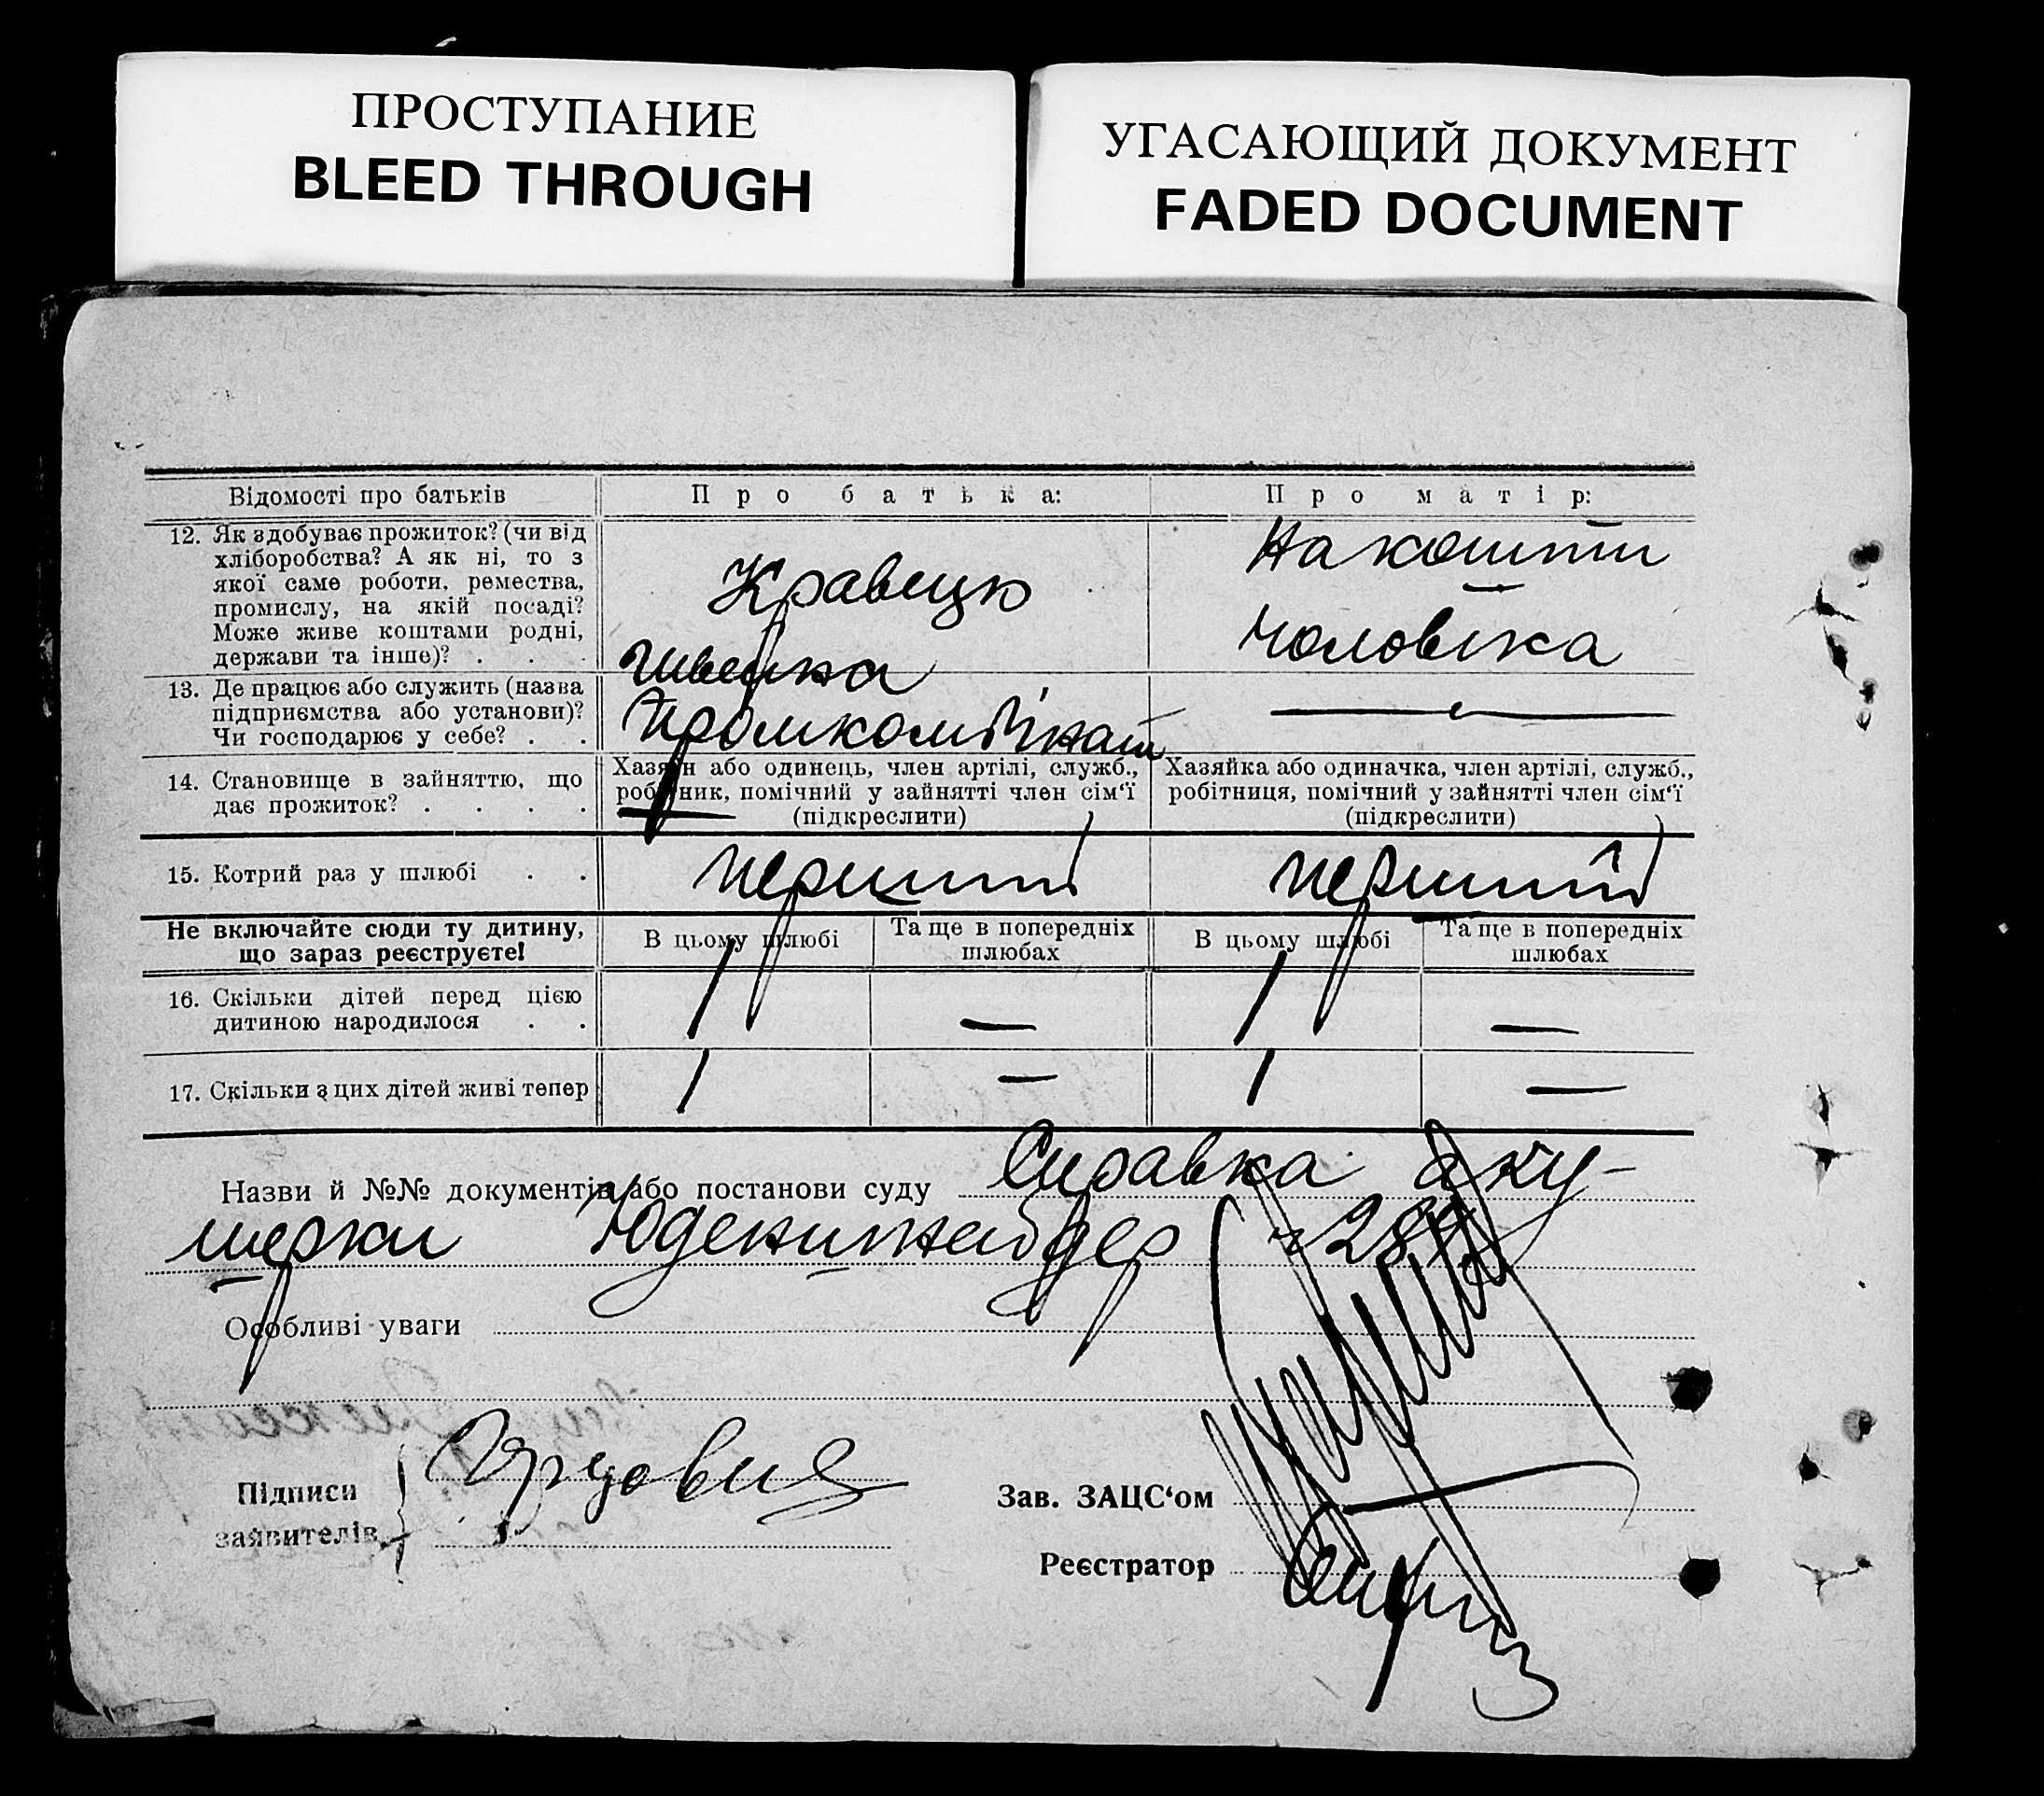 ПРОСТУПАНИЕ
BLEED THROUGH
УГАСАЮЩИЙ ДОКУМЕНТ
FADED DOCUMENT
Відомості про батьків
Про батька:
Про матір:
12. Як здобуває прожиток? (чи від
хліборобства? А як ні, то з
якої саме роботи, ремества,
промислу, на якій посаді?
Може живе коштами родні,
держави та інше)? . . .
Кравець
На кошти
чоловіка
13. Де працює або служить (назва
підприємства або установи)?
Чи господарює у себе? . .
Швейна
Промкомбінат
14. Становище в зайняттю, що
дає прожиток? . . . .
Хазяїн або одинець, член артілі, служб.,
робітник, помічний у зайнятті член сім'ї
(підкреслити)
Хазяйка або одиначка, член артілі, служб.,
робітниця, помічний у зайнятті член сім'ї
(підкреслити)
15. Котрий раз у шлюбі . .
перший
перший
Не включайте сюди ту дитину,
що зараз реєструєте!
В цьому шлюбі
Та ще в попередніх
шлюбах
В цьому шлюбі
Та ще в попередніх
шлюбах
16. Скільки дітей перед цією
дитиною народилося . .
1 — 1 —
17. Скільки з цих дітей живі тепер
1 — 1 —
Назви й №№ документів або постанови суду Справка аку-
шерки
Особливі уваги
Підписи
заявителів
Зав. ЗАЦС'ом
Реєстратор